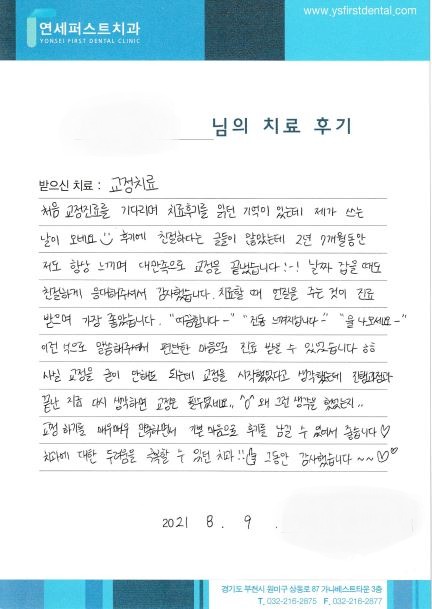 연세퍼스트치과
YONSEI FIRST DENTAL CLINIC
www.ysfirstdental.com
님의 치료 후기
받으신 치료 : 교정치료
처음 교정진료를 기다리며 치료후기를 읽던 기억이 있는데 제가 쓰는
날이 오네요 후기에 친절하다는 글들이 많았는데 2년 7개월동안
저도 항상 느끼며 대만족으로 교정을 끝냈습니다 !-! 날짜 잡을 때도
친절하게 응대해주셔서 감사했습니다. 치료할 때 언질을 주는 것이 진료
받으며 가장 좋았습니다. "따끔합니다~" "진동 느껴지십니다~" "물 나오세요~"
이런 식으로 말씀해주셔서 편안한 마음으로 진료 받을 수 있었습니다 ㅎㅎ
사실 교정을 굳이 안해도 되는데 교정을 시작했었다고 생각했는데 진행과정과
끝난 지금 다시 생각하면 교정은 필수였네요.. ^^ 왜 그런 생각을 했었는지..
교정 하기를 매우매우 만족하면서 기쁜 마음으로 후기를 남길 수 있어서 좋습니다 ♡
치과에 대한 두려움을 극복할 수 있던 치과!! 그동안 감사했습니다 ~~ ♡♡
2021 8. 9.
경기도 부천시 원미구 상동로 87 가나베스트타운 3층
T. 032-216-2875 F. 032-216-2877